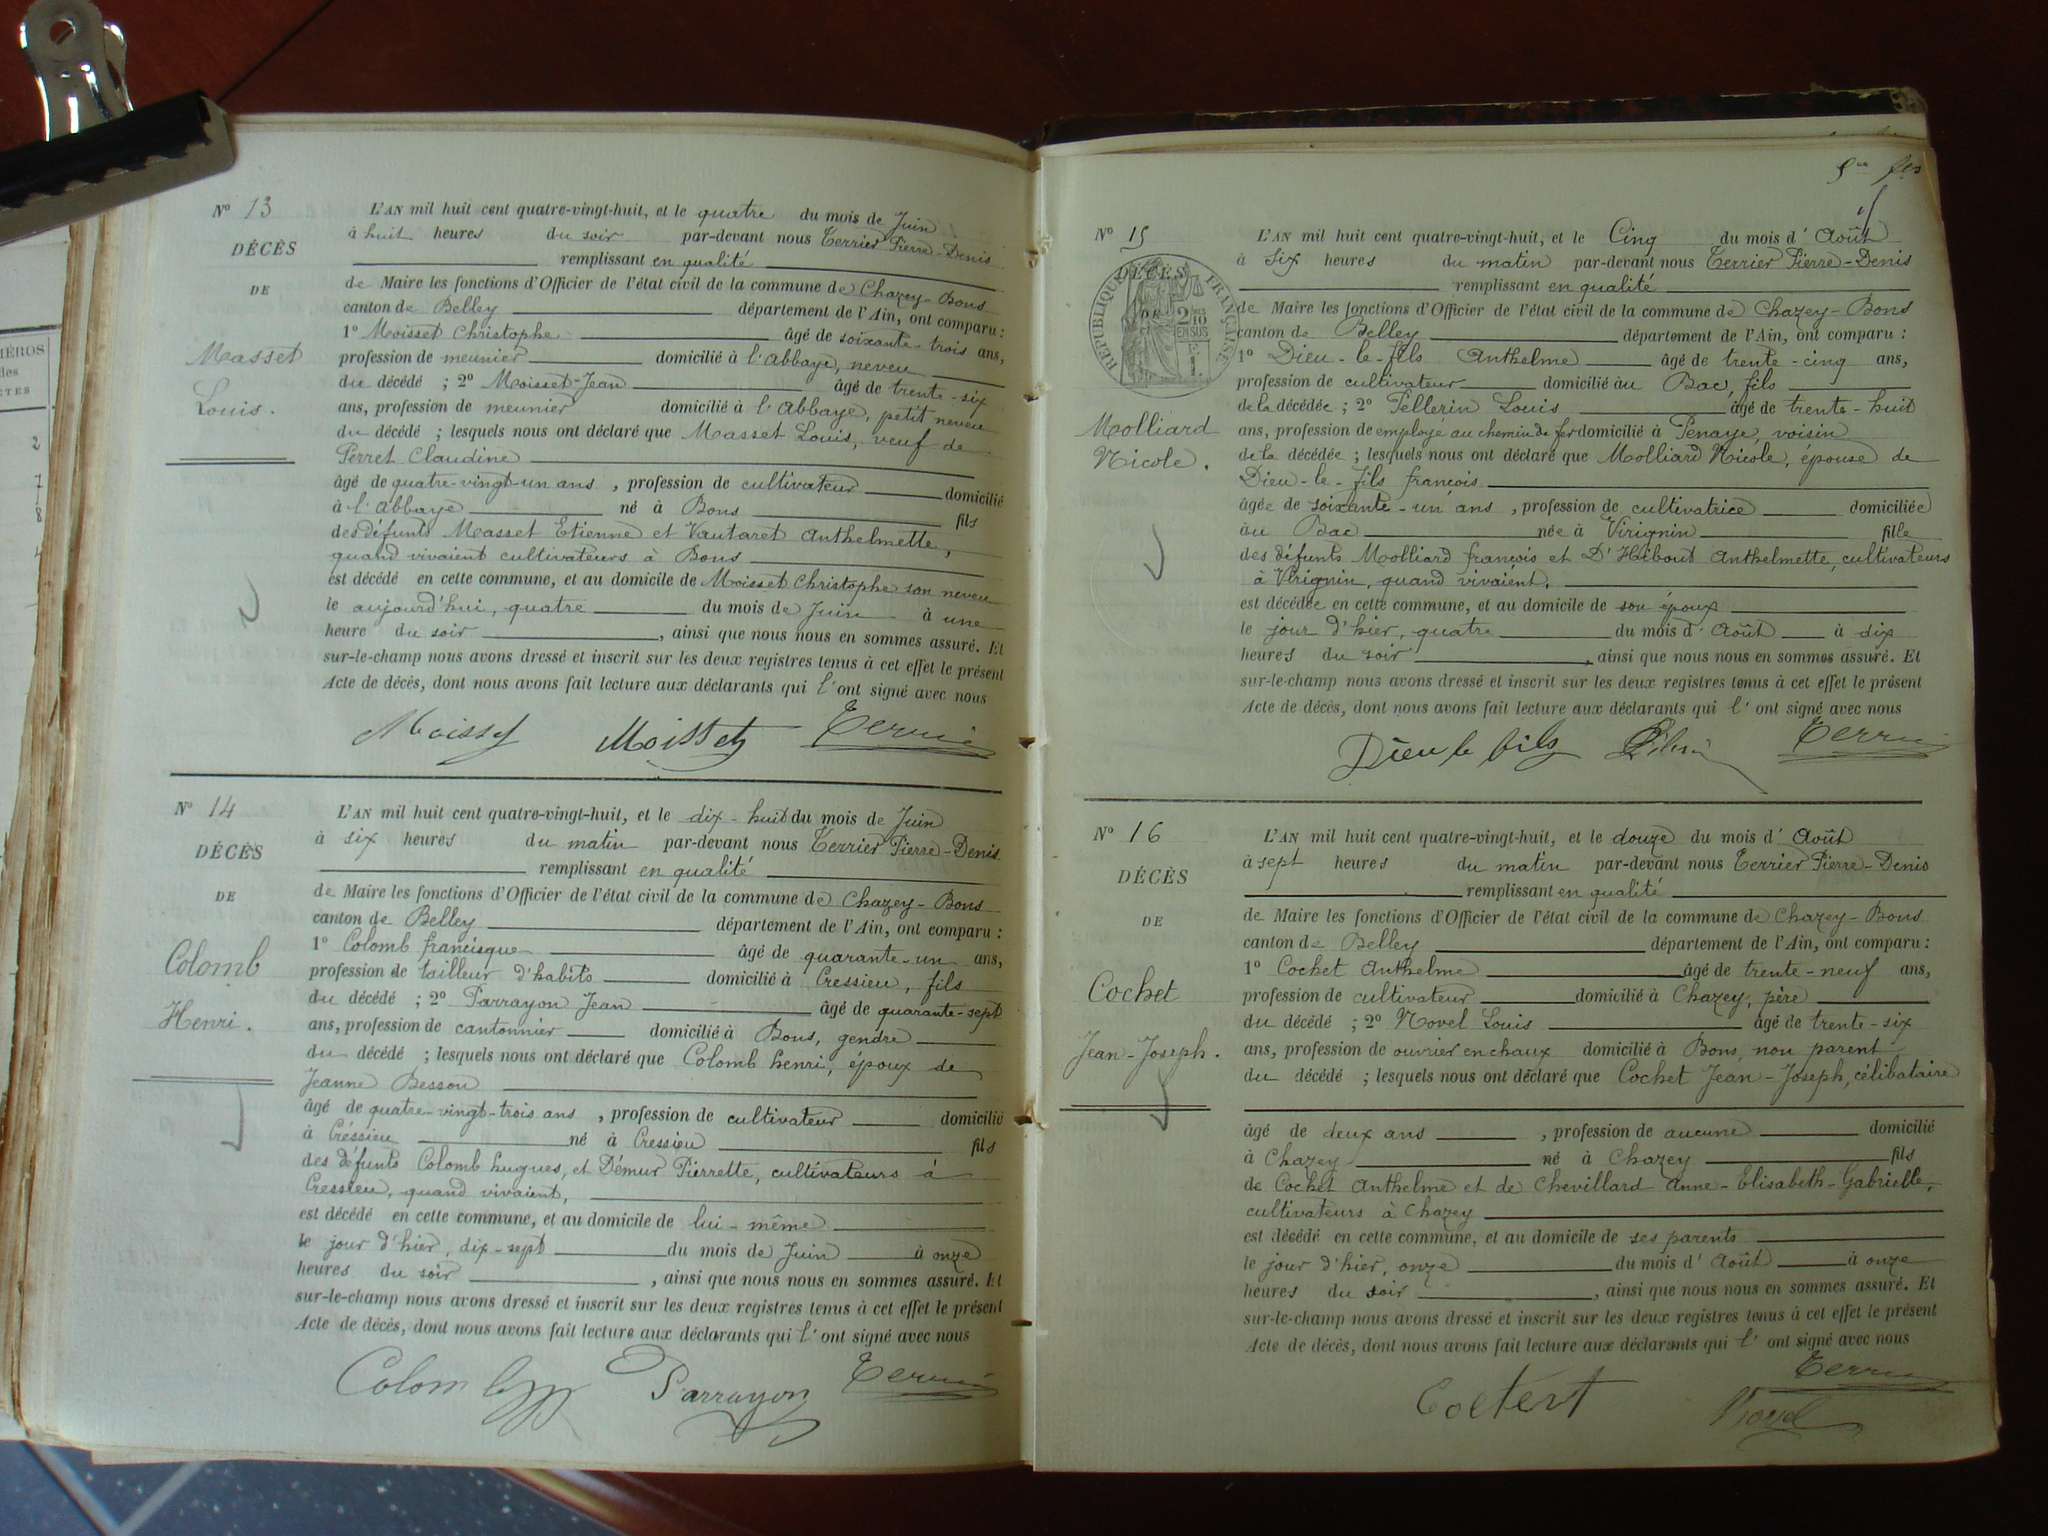 MÉROS
des
CTES
2
7
8
N° 13
DÉCÈS
DE
Masset
Louis.
L'AN mil huit cent quatre-vingt-huit, et le quatre du mois de Juin
à huit heures du soir par-devant nous Terrier Pierre-Denis
remplissant en qualité
de Maire les fonctions d'Officier de l'état civil de la commune de Chazey-Bons
canton de Belley département de l'Ain, ont comparu :
1° Moisset Christophe âgé de soixante-trois ans,
profession de meunier domicilié à l'Abbaye, neveu
du décédé ; 2° Moisset-Jean âgé de trente-six
ans, profession de meunier domicilié à l'Abbaye, petit neveu
du décédé ; lesquels nous ont déclaré que Masset Louis, veuf de
Perret Claudine
âgé de quatre-vingt-un ans , profession de cultivateur domicilié
à l'Abbaye né à Bons fils
des défunts Masset Etienne et Vautaret Anthelmette,
quand vivaient cultivateurs à Bons
est décédé en cette commune, et au domicile de Moisset Christophe son neveu
le aujourd'hui, quatre du mois de Juin à une
heure du soir , ainsi que nous nous en sommes assuré. Et
sur-le-champ nous avons dressé et inscrit sur les deux registres tenus à cet effet le présent
Acte de décès, dont nous avons fait lecture aux déclarants qui l'ont signé avec nous
Moisset Terrier
N° 14
DÉCÈS
DE
Colomb
Henri.
L'AN mil huit cent quatre-vingt-huit, et le dix-huit du mois de Juin
à six heures du matin par-devant nous Terrier Pierre-Denis
remplissant en qualité
de Maire les fonctions d'Officier de l'état civil de la commune de Chazey-Bons
canton de Belley département de l'Ain, ont comparu :
1° Colomb francisque âgé de quarante-un ans,
profession de tailleur d'habits domicilié à Cressieu, fils
du décédé ; 2° Parrayon Jean âgé de quarante-sept
ans, profession de cantonnier domicilié à Bons, gendre
du décédé ; lesquels nous ont déclaré que Colomb henri, époux de
Jeanne Besson
âgé de quatre-vingt-trois ans , profession de cultivateur domicilié
à Créssieu né à Cressieu fils
des défunts Colomb hugues, et Démur Pierrette, cultivateurs à
Cressieu, quand vivaient,
est décédé en cette commune, et au domicile de lui-même
le jour d'hier, dix-sept du mois de Juin à onze
heures du soir , ainsi que nous nous en sommes assuré. Et
sur-le-champ nous avons dressé et inscrit sur les deux registres tenus à cet effet le présent
Acte de décès, dont nous avons fait lecture aux déclarants qui l'ont signé avec nous
Colomb Parrayon Terrier
N° 15
DÉCÈS
RÉPUBLIQUE FRANÇAISE
2 10
EN SUS
Molliard
Nicole.
L'AN mil huit cent quatre-vingt-huit, et le Cinq du mois d'Août
à Six heures du matin par-devant nous Terrier Pierre-Denis
remplissant en qualité
de Maire les fonctions d'Officier de l'état civil de la commune de Chazey-Bons
canton de Belley département de l'Ain, ont comparu :
1° Dieu-le-fils Anthelme âgé de trente-cinq ans,
profession de cultivateur domicilié au Bac, fils
de la décédée ; 2° Pellerin Louis âgé de trente-huit
ans, profession de employé au chemin de fer domicilié à Penaye, voisin
de la décédée ; lesquels nous ont déclaré que Molliard Nicole, épouse de
Dieu-le-fils françois
âgée de soixante-un ans , profession de cultivatrice domiciliée
au Bac née à Virignin fille
des défunts Molliard françois et D'Hibout Anthelmette, cultivateurs
à Virignin, quand vivaient.
est décédée en cette commune, et au domicile de son époux
le jour d'hier, quatre du mois d'Août à dix
heures du soir , ainsi que nous nous en sommes assuré. Et
sur-le-champ nous avons dressé et inscrit sur les deux registres tenus à cet effet le présent
Acte de décès, dont nous avons fait lecture aux déclarants qui l'ont signé avec nous
Dieu le fils Terrier
N° 16
DÉCÈS
DE
Cochet
Jean-Joseph.
L'AN mil huit cent quatre-vingt-huit, et le douze du mois d'Août
à sept heures du matin par-devant nous Terrier Pierre-Denis
remplissant en qualité
de Maire les fonctions d'Officier de l'état civil de la commune de Chazey-Bons
canton de Belley département de l'Ain, ont comparu :
1° Cochet Anthelme âgé de trente-neuf ans,
profession de cultivateur domicilié à Chazey, père
du décédé ; 2° Novel Louis âgé de trente-six
ans, profession de ouvrier en chaux domicilié à Bons, non parent
du décédé ; lesquels nous ont déclaré que Cochet Jean-Joseph, célibataire
âgé de deux ans , profession de aucune domicilié
à Chazey né à Chazey fils
de Cochet Anthelme et de Chevillard Anne-Elisabeth-Gabrielle,
cultivateurs à Chazey
est décédé en cette commune, et au domicile de ses parents
le jour d'hier, onze du mois d'Août à onze
heures du soir , ainsi que nous nous en sommes assuré. Et
sur-le-champ nous avons dressé et inscrit sur les deux registres tenus à cet effet le présent
Acte de décès, dont nous avons fait lecture aux déclarants qui l'ont signé avec nous
Terrier
Novel